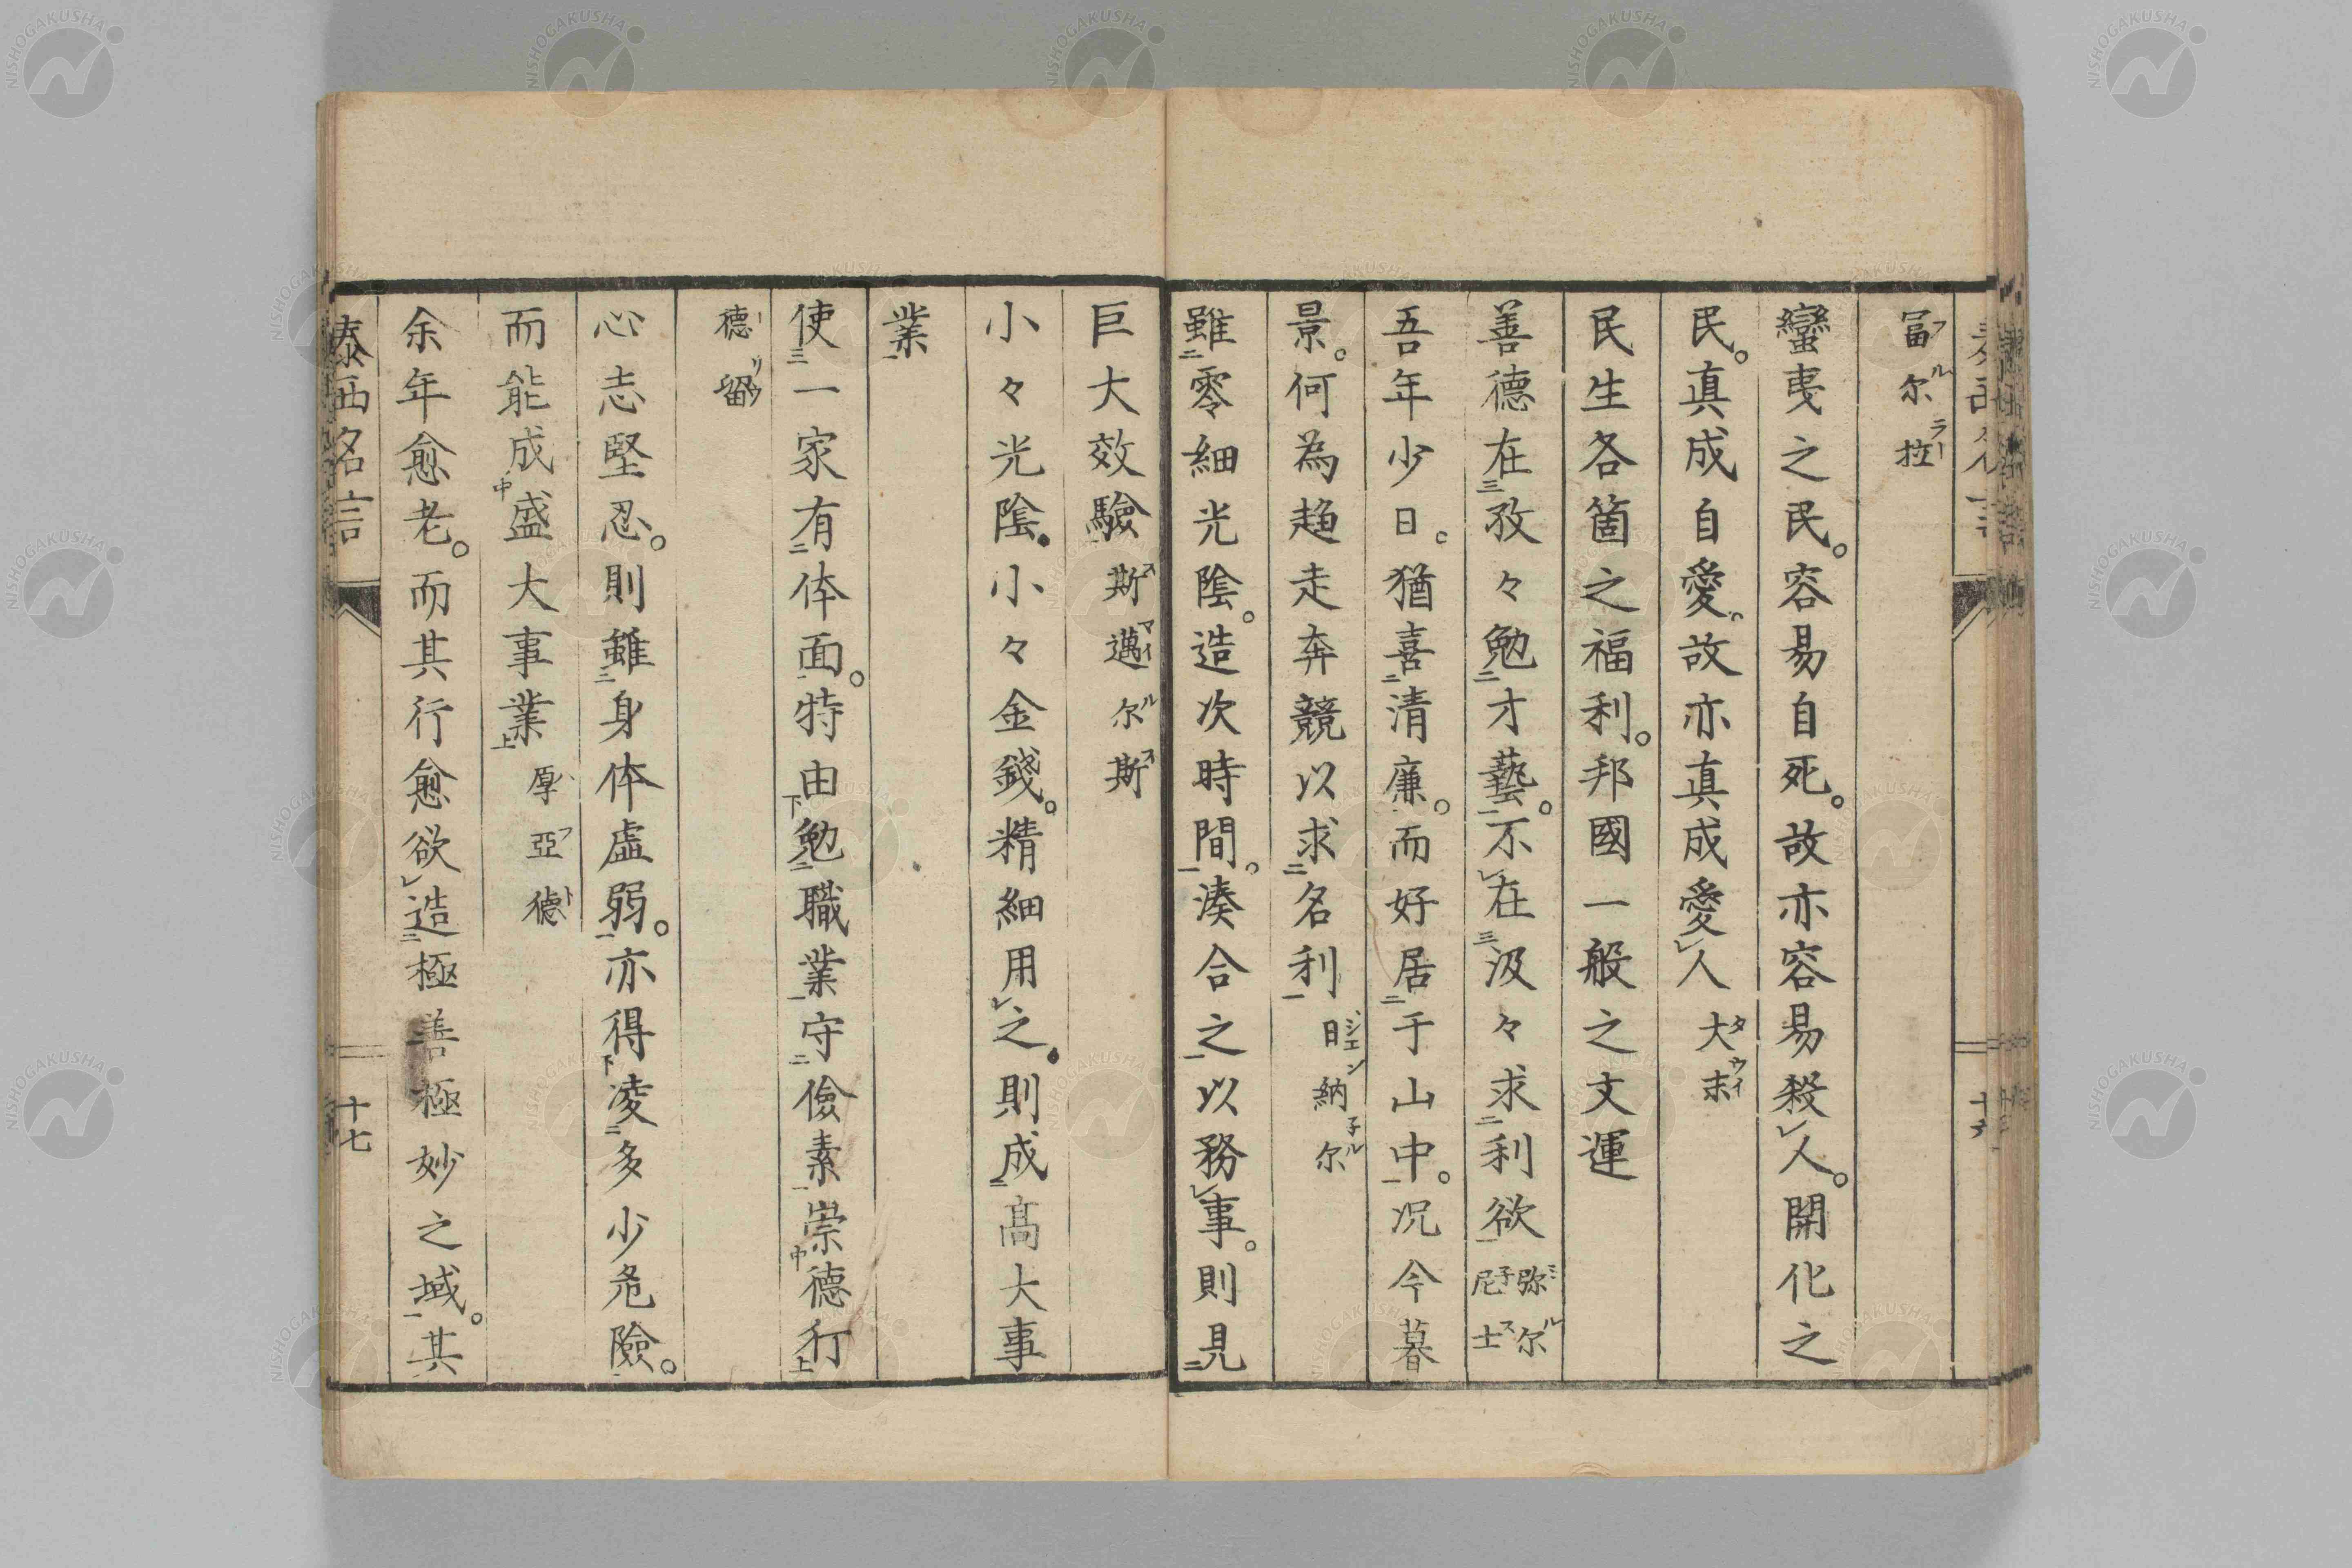 冨尓拉
蠻夷之民。容易自死。故亦容易殺人。開化之
民。真成自愛。故亦真成愛人 大末
民生各箇之福利。邦國一般之文運
善德在孜々勉才藝。不在汲々求利欲 弥尓尼士
吾年少日。猶喜清廉。而好居于山中。況今暮
景。何為趋走奔競以求名利 日納尓
雖零細光陰。造次時間。湊合之以務事。則見
巨大效驗 斯邁尓斯
小々光陰。小々金錢。精細用之。則成高大事
業
使一家有体面。特由勉職業守儉素崇德行
德留
心志堅忍。則雖身体虛弱。亦得凌多少危險。
而能成盛大事業 厚亞德
余年愈老。而其行愈欲造極善極妙之域。其
泰西名言 十七
NISHOGAKUSHA